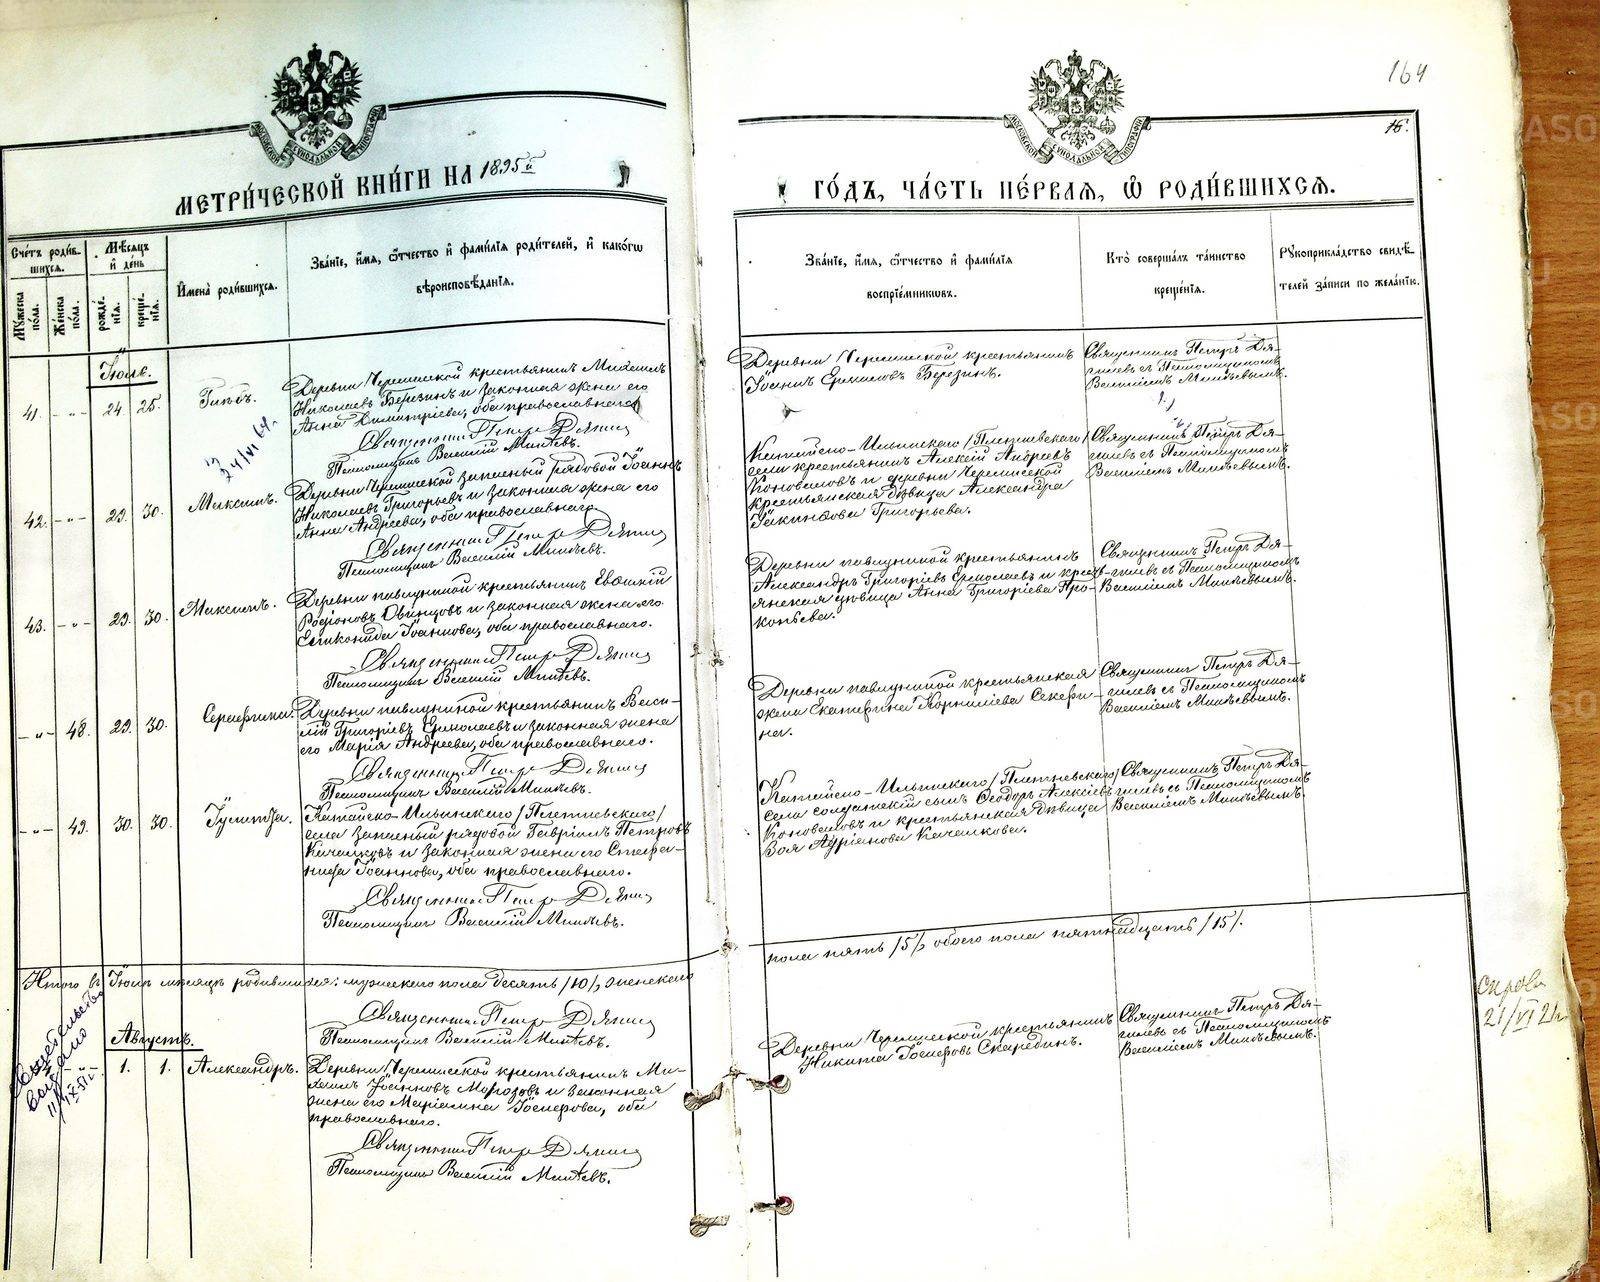 164
МОСКОВСКОЙ СѴНОДАЛЬНОЙ ТИПОГРАФІИ
МОСКОВСКОЙ СѴНОДАЛЬНОЙ ТИПОГРАФІИ
МЕТРИ́ЧЕСКОЙ КНИ́ГИ НА 1895й
ГО́ДЪ, ЧА́СТЬ ПЕ́РВАЯ, Ѽ РОДИ́ВШИХСЯ.
Сче́тъ роди́вшихся.
Мꙋжеска по́ла.
Же́нска по́ла.
Мѣ́сяцъ и҆ де́нь
рожде́нїя.
креще́нїя.
И҆мена̀ роди́вшихся.
Зва́нїе, и҆́мя, ѻ҆́тчество и҆ фами́лїя роди́телей, и҆ како́гѡ
вѣроисповѣ́данїя.
Зва́нїе, и҆́мя, ѻ҆́тчество и҆ фами́лїя
воспрїе́мникѡвъ.
Кто̀ соверша́лъ та́инство
креще́нїя.
Рꙋкоприкла́дство свидѣ́телей за́писи по жела́нїю.
Іюль.
41. - „ - 24. 25. Глѣбъ.
Деревни Черемисской крестьянинъ Михаилъ
Николаевъ Березинъ и законная жена его
Анна Димитріева, оба православнаго.
Священникъ Петръ Дягилевъ
Псаломщикъ Василій Минѣевъ.
Деревни Черемисской крестьянинъ
Іоаннъ Ермиловъ Березинъ.
Священникъ Петръ Дягилевъ съ Псаломщикомъ
Василіемъ Минѣевымъ.
24/VI 64 г.
42. - „ - 29. 30. Максимъ.
Деревни Черемисской запасный рядовой Іоаннъ
Николаевъ Григорьевъ и законная жена его
Анна Андреева, оба православнаго.
Священникъ Петръ Дягилевъ
Псаломщикъ Василій Минѣевъ.
Катайско-Ильинскаго /Плетневскаго/
села крестьянинъ Алексій Андреевъ
Коноваловъ и деревни Черемисской
крестьянская дѣвица Александра
Іакинѳова Григорьева.
Священникъ Петръ Дягилевъ съ Псаломщикомъ
Василіемъ Минѣевымъ.
43. - „ - 29. 30. Максимъ.
Деревни Павлуниной крестьянинъ Евѳимій
Родіоновъ Овинцовъ и законная жена его
Епихонида Іоаннова, оба православнаго.
Священникъ Петръ Дягилевъ
Псаломщикъ Василій Минѣевъ.
Деревни Павлуниной крестьянинъ
Александръ Григоріевъ Ермолаевъ и крестьянская дѣвица Анна Григоріева Прокопьева.
Священникъ Петръ Дягилевъ съ Псаломщикомъ
Василіемъ Минѣевымъ.
- „ - 48. 29. 30. Серафима.
Деревни Павлуниной крестьянинъ Василій Григоріевъ Ермолаевъ и законная жена
его Марія Андреева, оба православнаго.
Священникъ Петръ Дягилевъ
Псаломщикъ Василій Минѣевъ.
Деревни Павлуниной крестьянская
жена Екатерина Корниліева Секерина.
Священникъ Петръ Дягилевъ съ Псаломщикомъ
Василіемъ Минѣевымъ.
- „ - 49. 30. 30. Іулитта.
Катайско-Ильинскаго /Плетневскаго/
села запасный рядовой Гавріилъ Петровъ
Качалковъ и законная жена его Стефанида Іоаннова, оба православнаго.
Священникъ Петръ Дягилевъ
Псаломщикъ Василій Минѣевъ.
Катайско-Ильинскаго /Плетневскаго/
села солдатскій сынъ Ѳеодоръ Алексіевъ
Коноваловъ и крестьянская дѣвица
Зоя Адріанова Качалкова.
Священникъ Петръ Дягилевъ съ Псаломщикомъ
Василіемъ Минѣевымъ.
Итого въ Іюлѣ мѣсяцѣ родившихся: мужескаго пола десять /10/, женскаго
пола пять /5/, обоего пола пятнадцать /15/.
Священникъ Петръ Дягилевъ
Псаломщикъ Василій Минѣевъ.
Августъ.
1. 1. Александръ.
Деревни Черемисской крестьянинъ Михаилъ Іоанновъ Морозовъ и законная
жена его Маріамна Іосифова, оба
православнаго.
Священникъ Петръ Дягилевъ
Псаломщикъ Василій Минѣевъ.
Деревни Черемисской крестьянинъ
Никита Іосифовъ Скарединъ.
Священникъ Петръ Дягилевъ съ Псаломщикомъ
Василіемъ Минѣевымъ.
Свидетельство
выдано
21/VI 21г